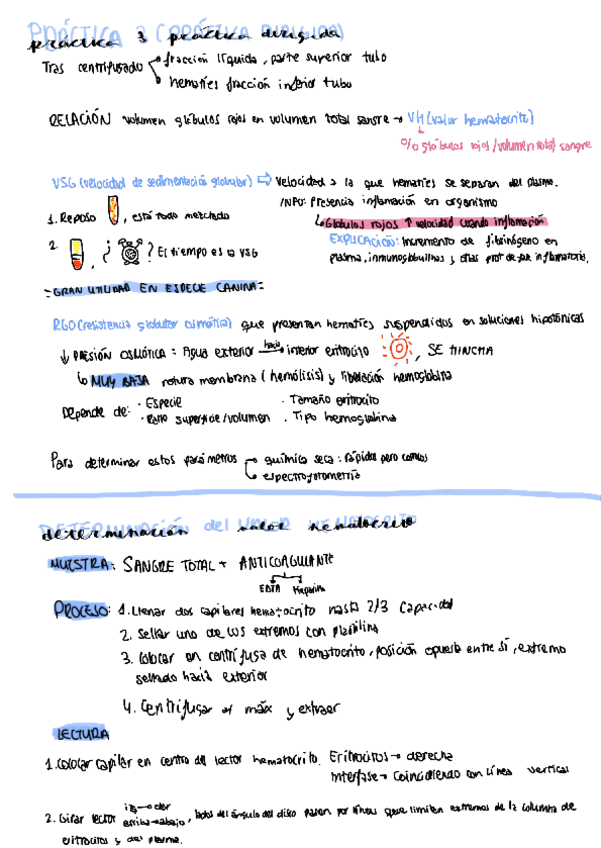 PRÁCTICA 3 (PRÁCTICA DIRIGIDA)
práctica 3 práctica dirigida
Tras centrifugado → fracción líquida, parte superior tubo
→ hematíes fracción inferior tubo
RELACIÓN volumen glóbulos rojos en volumen total sangre → VH (valor hematocrito)
% glóbulos rojos / volumen total sangre
VSG (velocidad de sedimentación globular) ⇒ Velocidad a la que hematíes se separan del plasma.
INPO: Presencia inflamación en organismo
1. Reposo , está todo mezclado
↳ Glóbulos rojos ↑ velocidad cuando inflamación
2. , ¿ ? El tiempo es la VSG
EXPLICACIÓN: Incremento de fibrinógeno en
plasma, inmunoglobulinas y otras prot de fase inflamatoria.
- GRAN UTILIDAD EN ESPECIE CANINA -
RGO (resistencia globular osmótica) que presentan hematíes suspendidos en soluciones hipotónicas
↓ PRESIÓN OSMÓTICA = Agua exterior hacia interior eritrocito : , SE HINCHA
↳ MUY BAJA rotura membrana (hemólisis) y liberación hemoglobina
Depende de: · Especie · Tamaño eritrocito
· Ratio superficie/volumen · Tipo hemoglobina
Para determinar estos parámetros → química seca: rápidos pero
→ espectrofotometría
DETERMINACIÓN del VALOR HEMATOCRITO
determinación valor hematocrito
MUESTRA: SANGRE TOTAL + ANTICOAGULANTE
EDTA Heparina
PROCESO: 1. Llenar dos capilares hematocrito hasta 2/3 capacidad
2. Sellar uno de los extremos con plastilina
3. Colocar en centrífuga de hematocrito, posición opuesta entre sí, extremo
sellado hacia exterior
4. Centrifugar al máx y extraer
LECTURA
1. Colocar capilar en centro del lector hematocrito. Eritrocitos → derecha
Interfase → Coincidiendo con línea vertical
2. Girar lector izq → der
arriba → abajo, lados del ángulo del disco pasen por líneas que limiten extremos de la columna de
eritrocitos y del plasma.